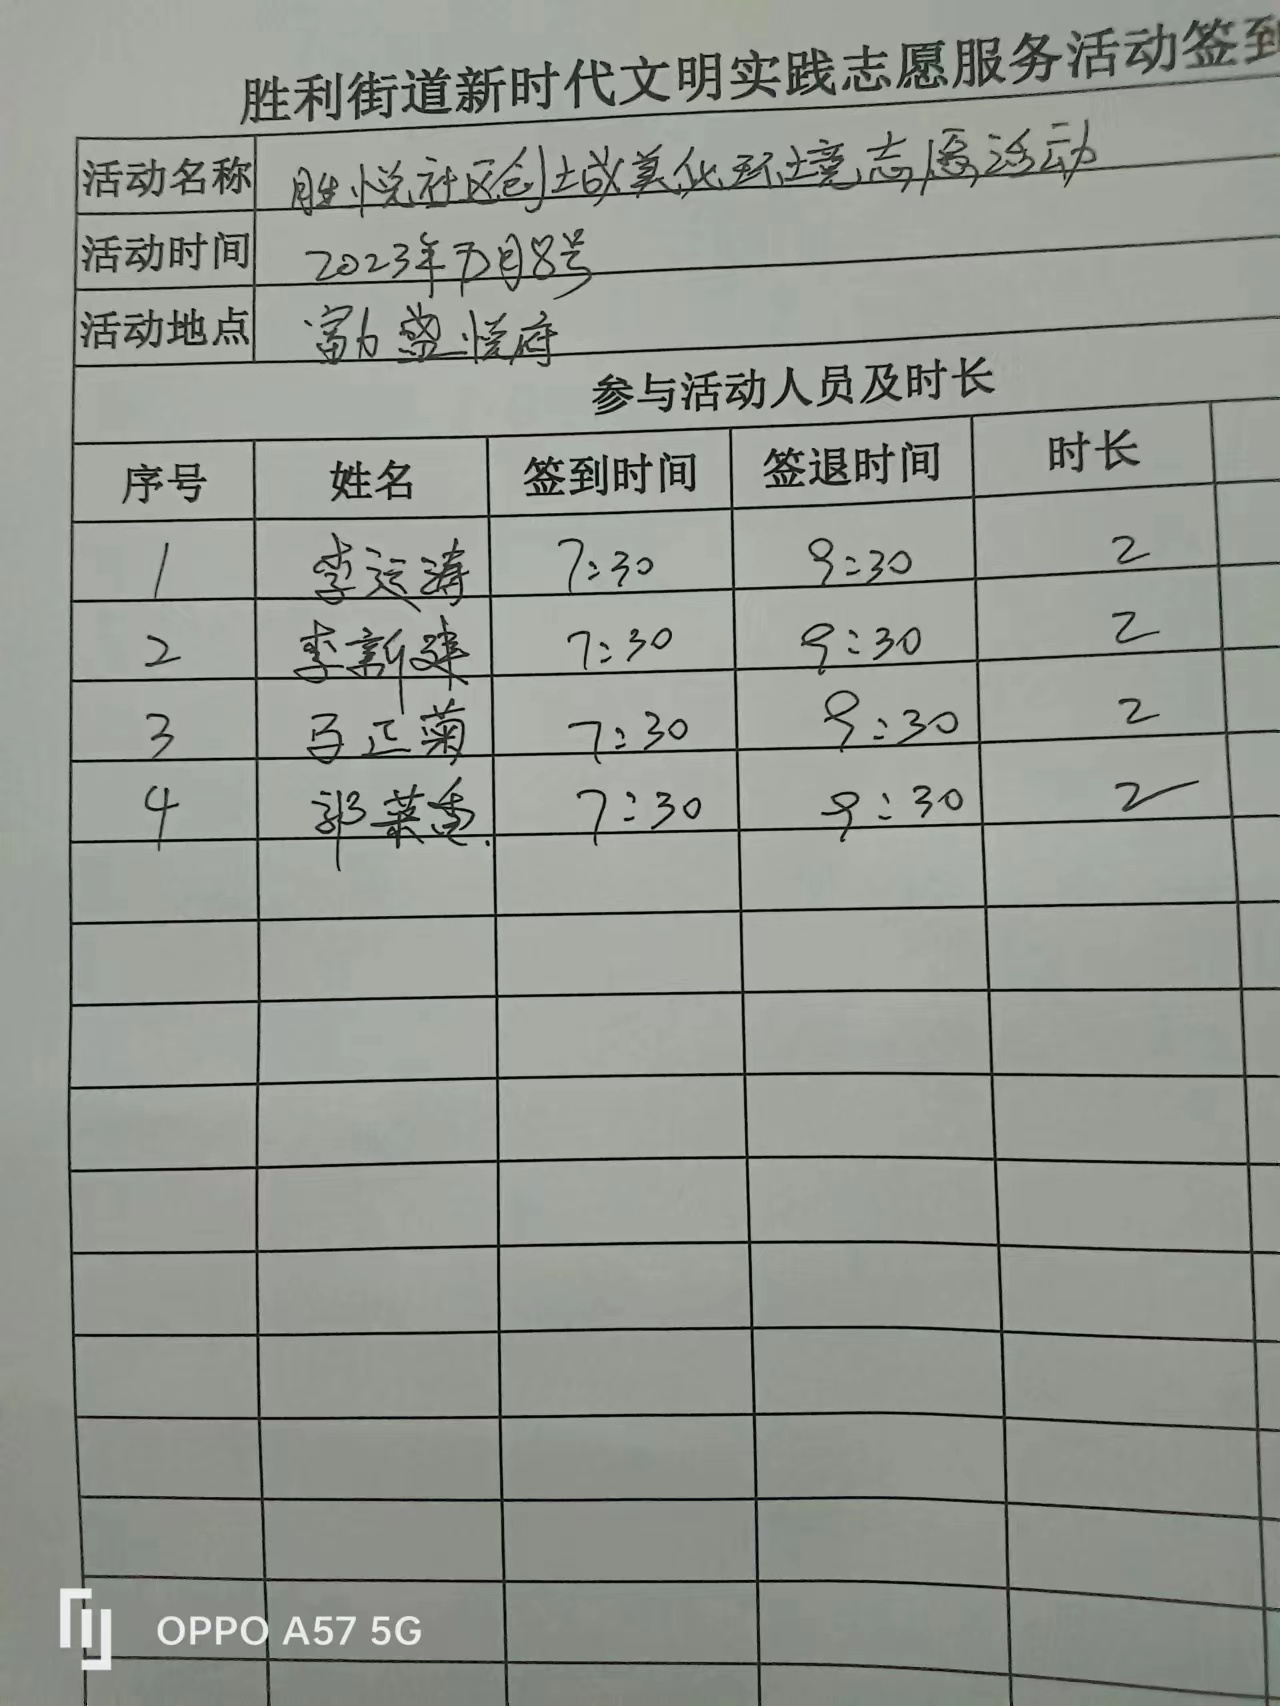 胜利街道新时代文明实践志愿服务活动签到
活动名称 胜悦社区创城美化环境志愿活动
活动时间 2023年7月8号
活动地点 富力盛悦府
参与活动人员及时长
序号 姓名 签到时间 签退时间 时长
1 李运涛 7:30 9:30 2
2 李新建 7:30 9:30 2
3 马正菊 7:30 9:30 2
4 郭菜香 7:30 9:30 2
OPPO A57 5G